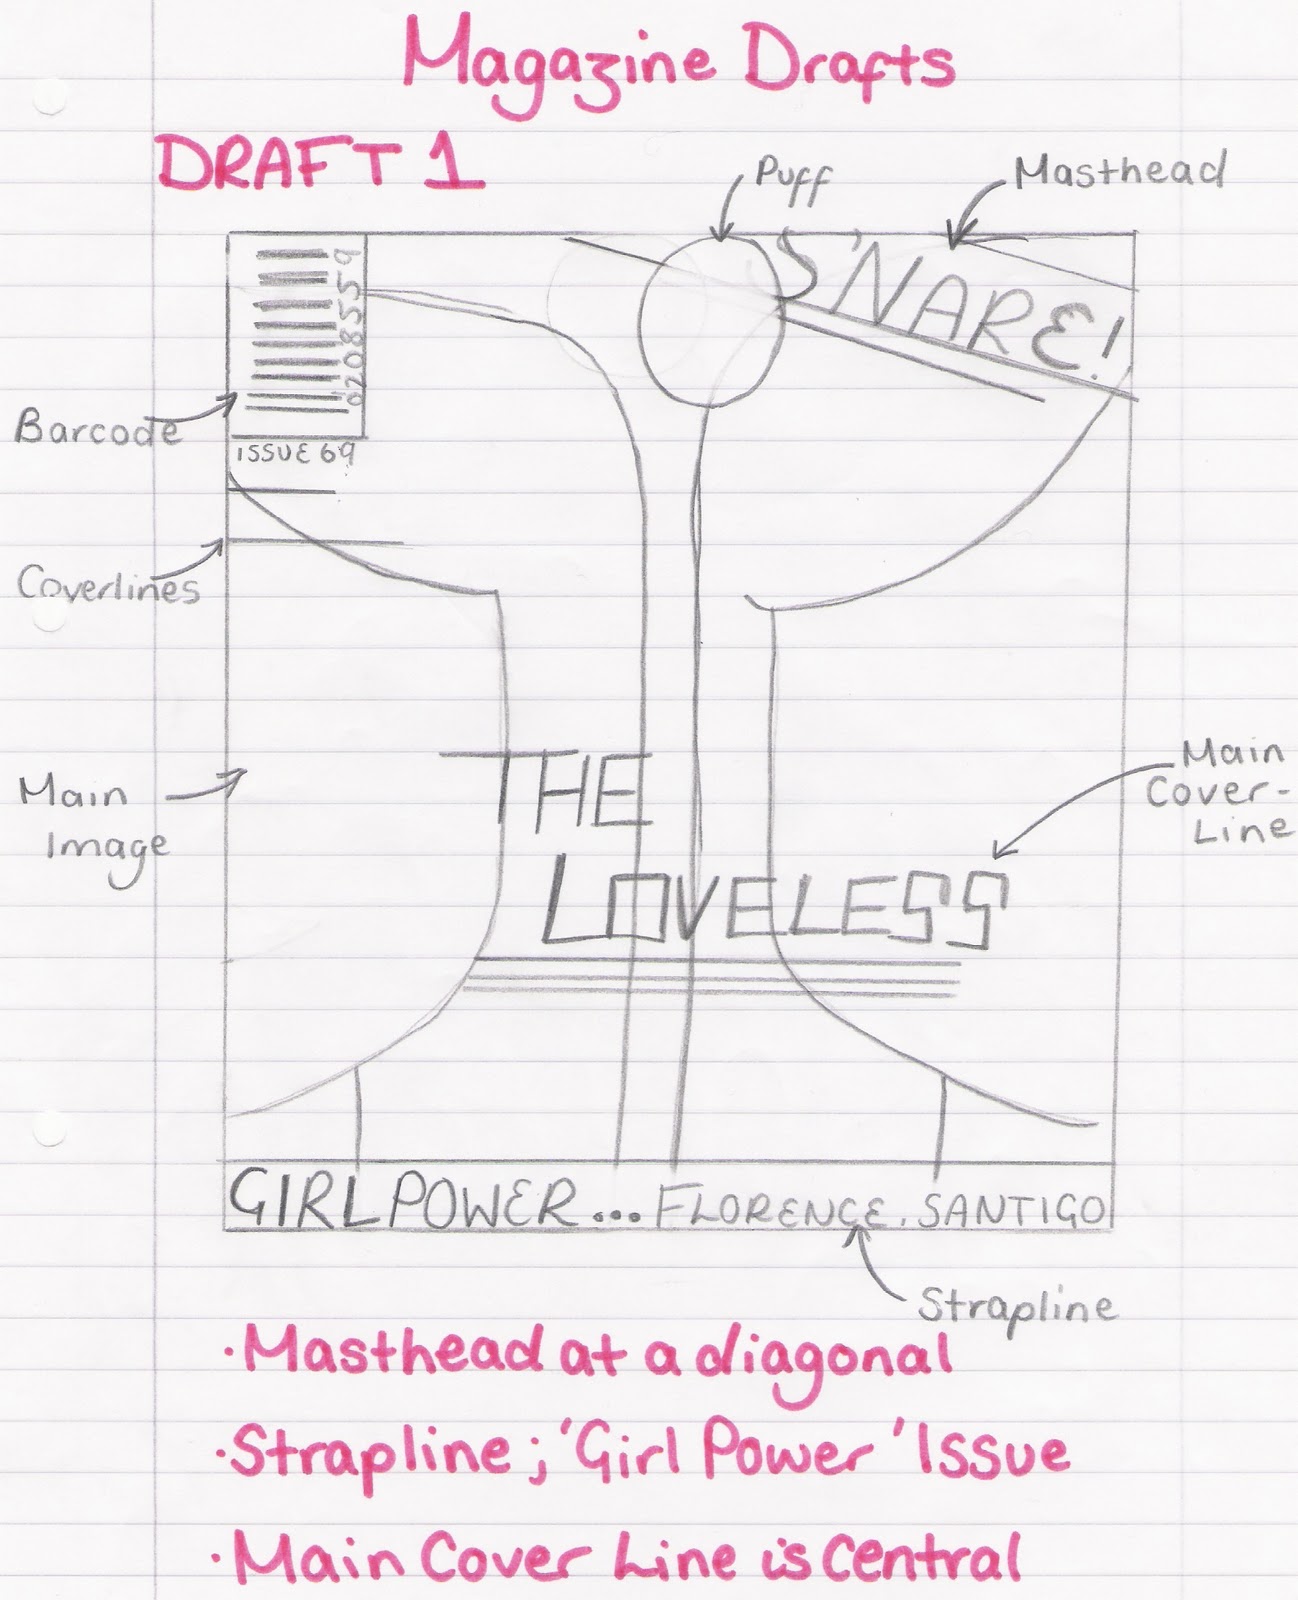 Magazine Drafts
DRAFT 1
Puff
Masthead
S'NARE!
02085559
Barcode
ISSUE 69
Coverlines
Main
Image
THE
LOVELESS
Main
Cover-
Line
GIRL POWER... FLORENCE. SANTIGO
Strapline
·Masthead at a diagonal
·Strapline; 'Girl Power' Issue
·Main Cover Line is central